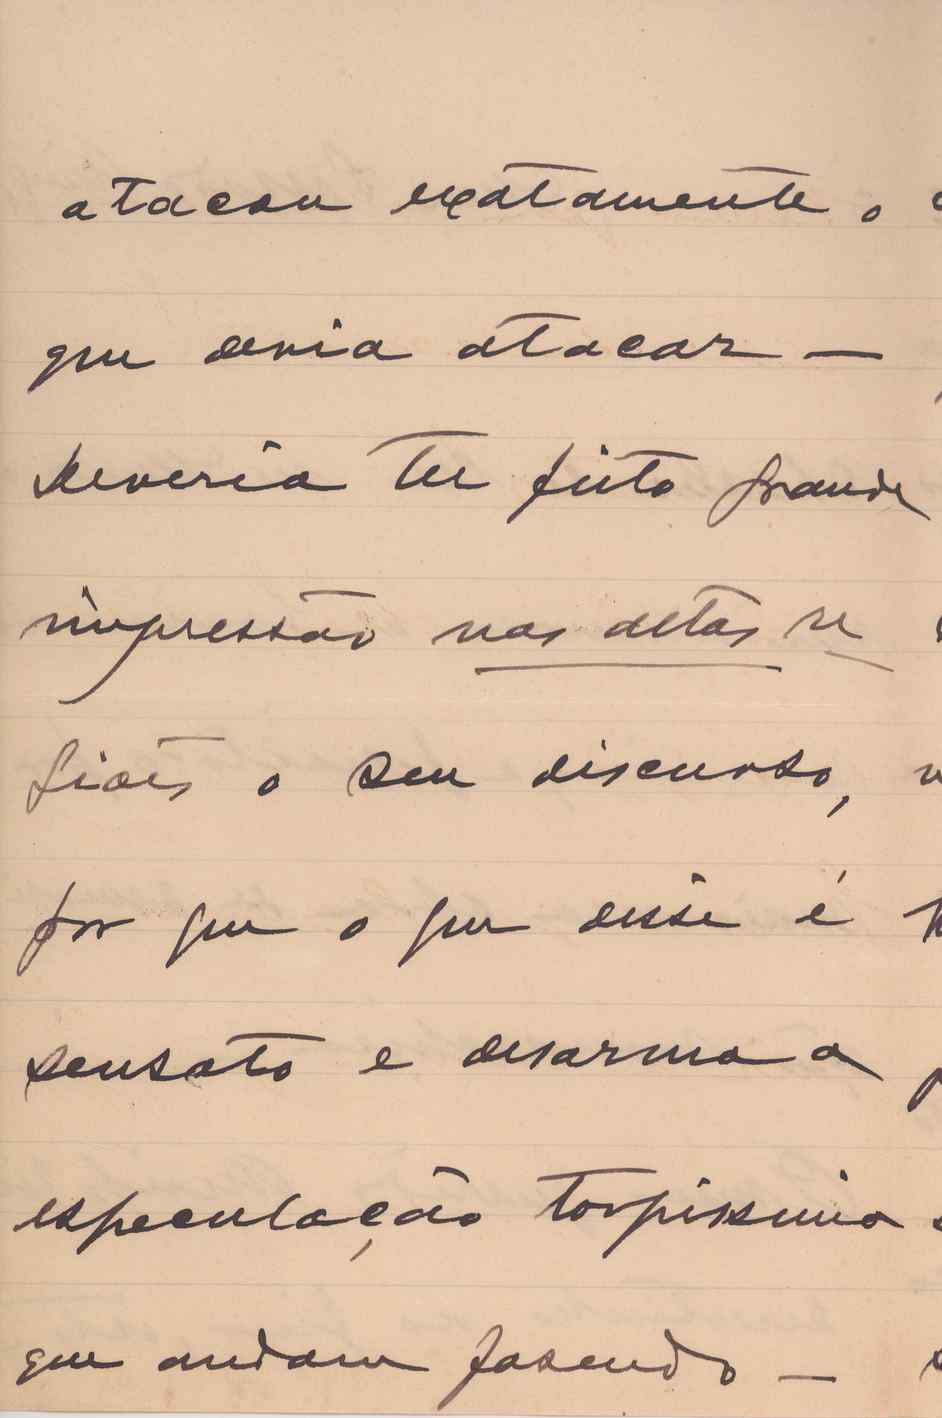 atacou exatamente o
que devia atacar —
Deveria ter feito grande
impressão nas altas re
giões o seu discurso,
por que o que disse é
sensato e desarma a
especulação torpissima
que andam fasendo —